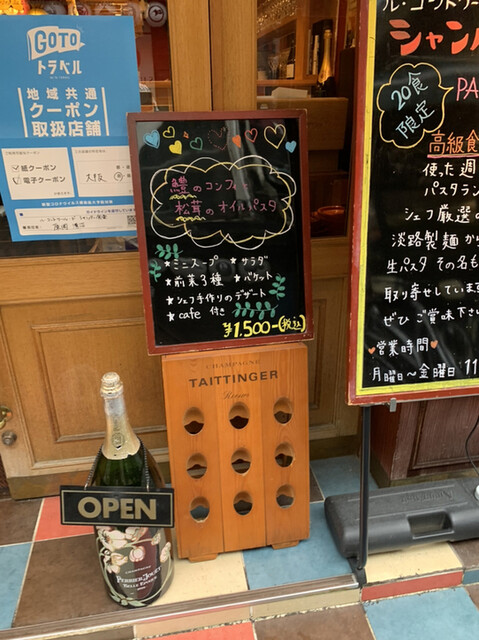 GOTO
トラベル
地域共通
クーポン
取扱店舗
紙クーポン
電子クーポン
大阪
鱧のコンフィ
松茸のオイルパスタ
★ミニスープ ★サラダ
★前菜3種 ★バケット
★シェフ手作りのデザート
★cafe 付き
¥1.500-(税込)
CHAMPAGNE
TAITTINGER
Reims
OPEN
PERRIER-JOUËT
BELLE EPOQUE
ル・コントワー
シャン
20食
限定
PA
高級食
使った週
パスタラン
シェフ厳選の
淡路製麺から
生パスタ その名も
取り寄せしています
ぜひ ご賞味下さい
営業時間
月曜日～金曜日 11